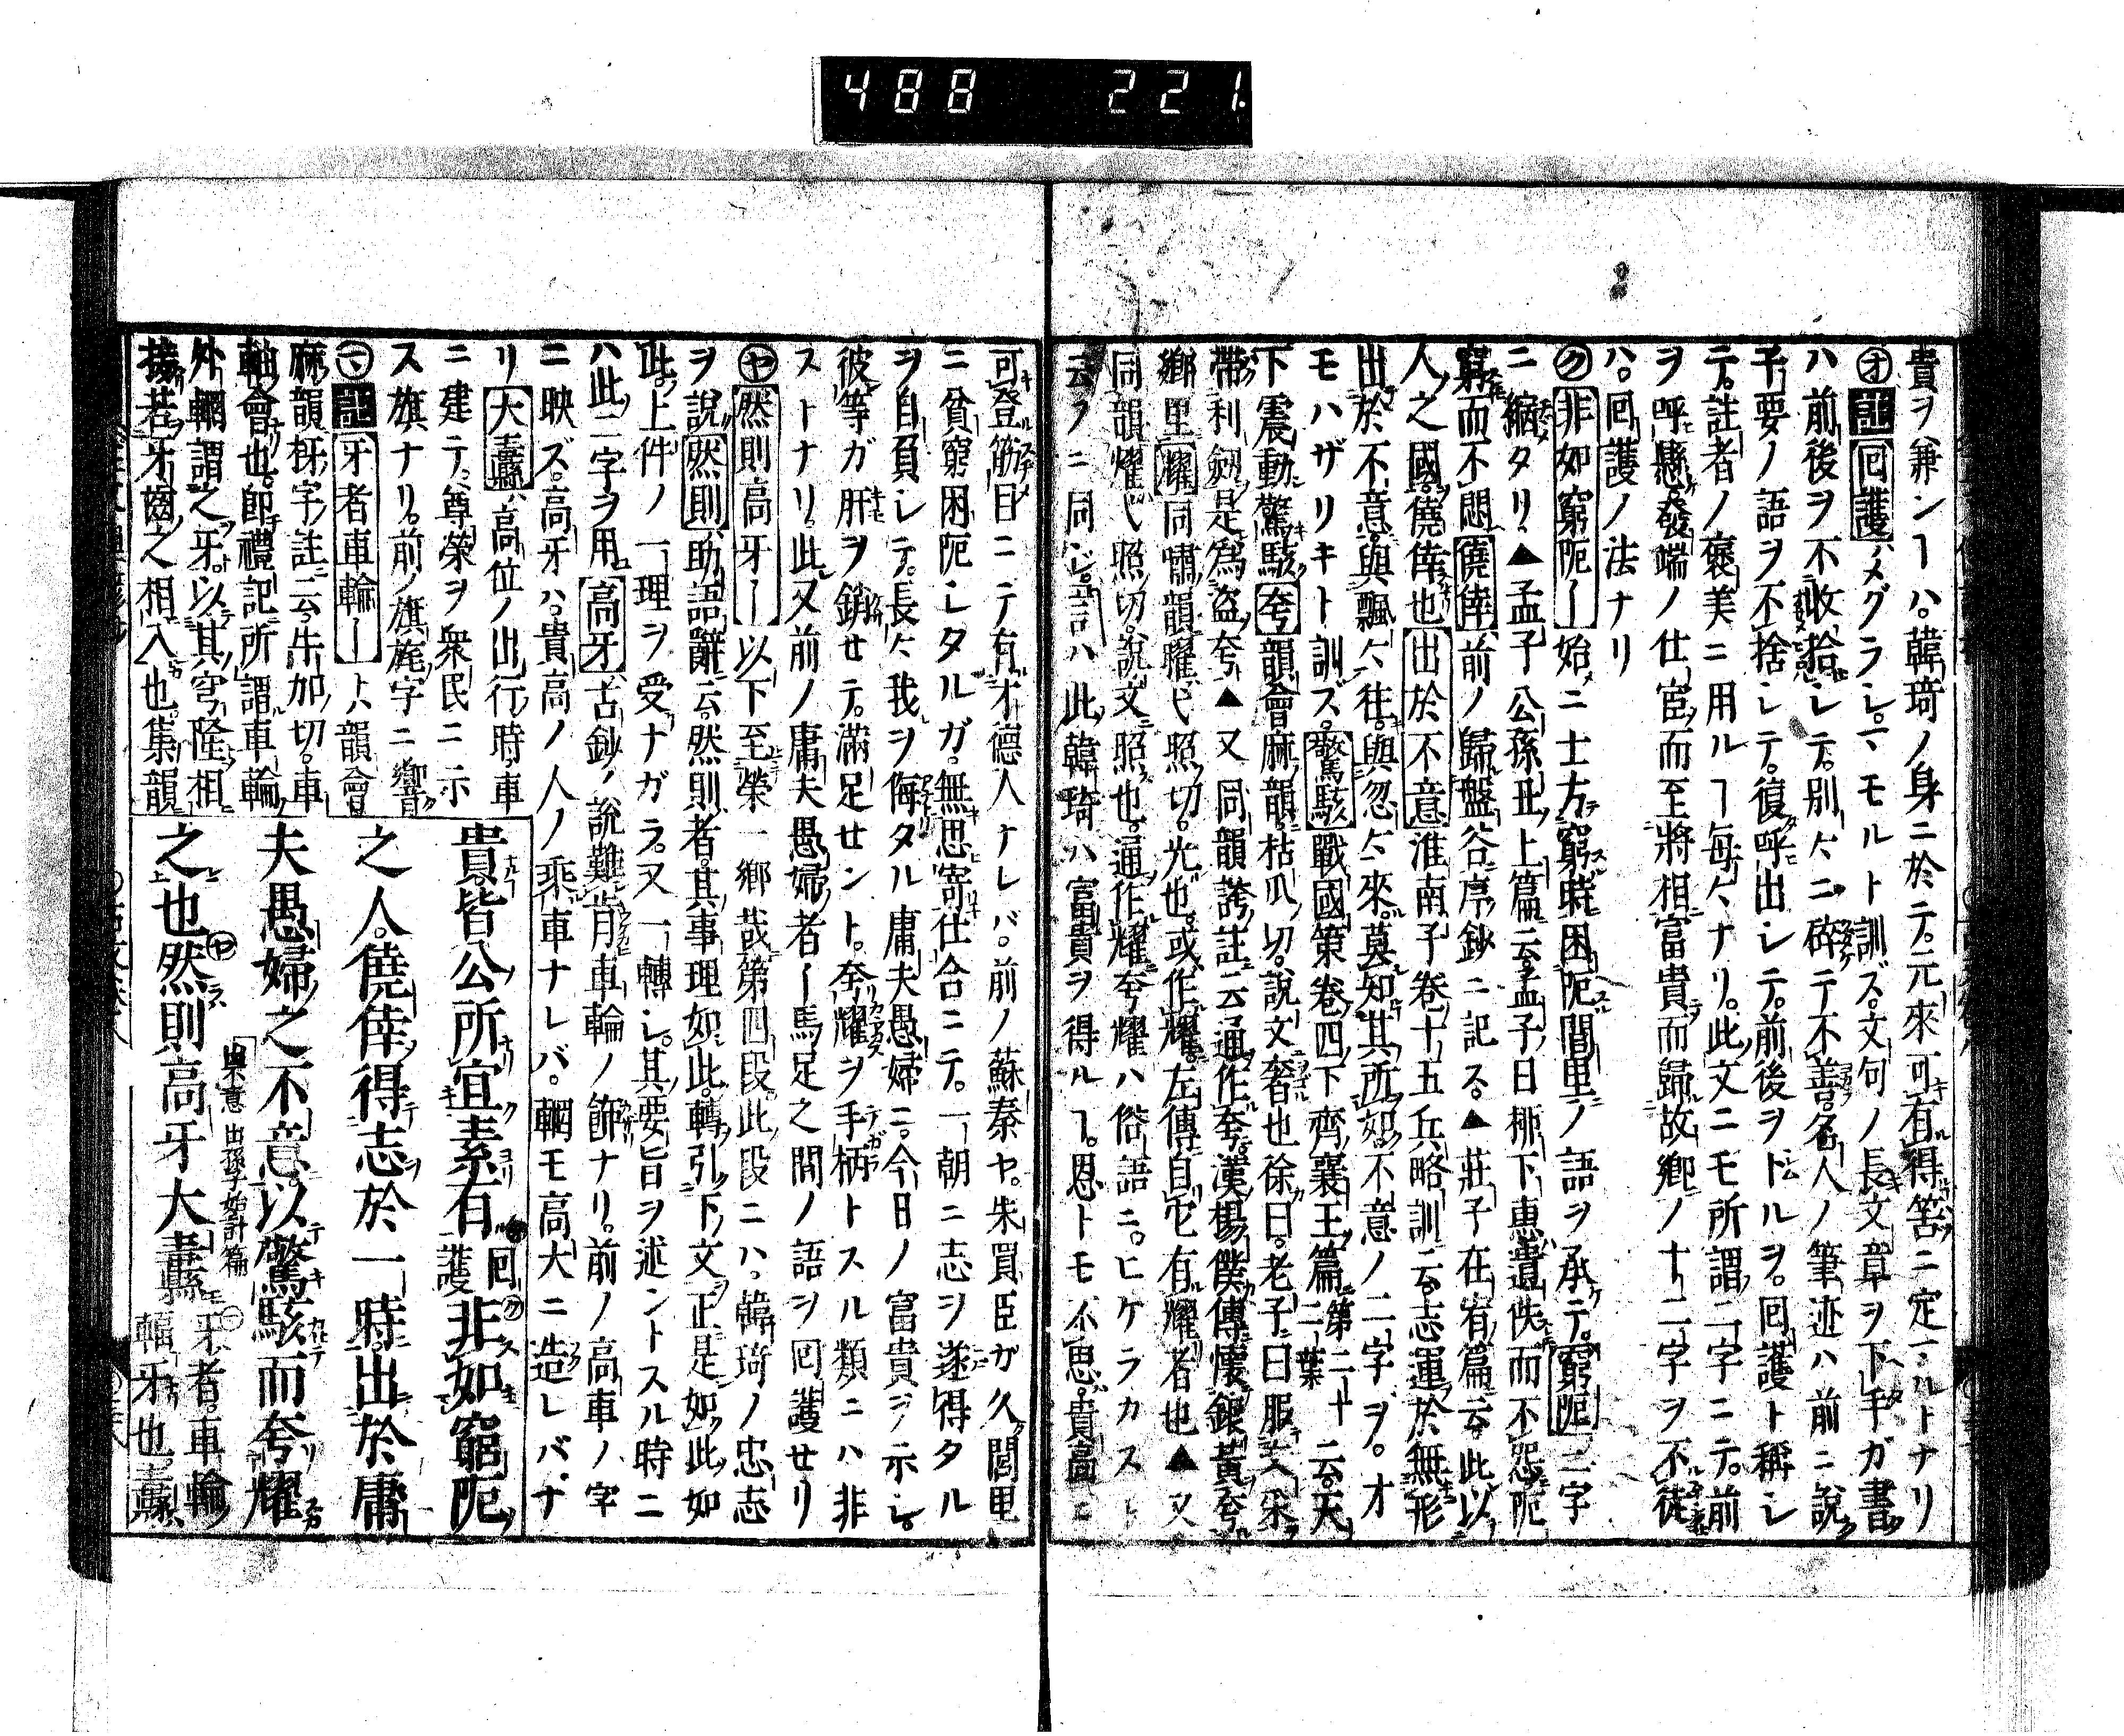 488 221.
貴ヲ兼ンヿハ。韓琦ノ身ニ於テ。元來可有得筈ニ定マルトナリ
㋔註回護ハメグラシ。マモルト訓ズ。文句ノ長文章ヲ下手ガ書
ハ前後ヲ不收拾シテ。別々ニ碎テ不善。名人ノ筆迹ハ前ニ說
予要ノ語ヲ不捨シテ。復呼出シテ。前後ヲトルヲ。回護ト稱シ
テ。註者ノ褒美ニ用ルヿ每々ナリ。此文ニモ所謂二字ニテ。前
ヲ呼懸發端ノ仕宦而至將相富貴而歸故鄉ノ十二字ヲ不徒
ハ。回護ノ法ナリ
㋗非如窮阨ー始ニ士方窮時困阨閭里ノ語ヲ承テ。窮阨二字
ニ縮タリ▲孟子公孫丑上篇云孟子曰柳下惠遺佚而不怨阨
窮而不憫僥倖前ノ歸盤谷序鈔ニ記ス。▲莊子在宥篇云此以
人之國僥倖也出於不意淮南子卷十五兵略訓云志運於無形
出於不意。與飄々往。與忽々來。莫知其所。不意ノ二字ヲ。オ
モハザリキト訓ズ。驚駭戰國策卷四下齊襄王篇第二十二葉云。天
下震動驚駭夸韻會麻韻。枯瓜切。說文奢也徐曰。老子曰服文采
帶利劔是爲盜夸▲又同韻誇註云通作夸。漢楊僕傳懷銀黃夸
鄉里耀同嘯韻曜弋照切。光也。或作耀。左傳自它有耀者也▲又
同韻燿弋照切。說文照也。通作耀夸耀ハ俗語ニ。ヒケラカスト
云フニ同ジ。言ハ此韓琦ハ富貴ヲ得ルヿ。恩トモ不思。貴高ニ
可登筋目ニテ有才德人ナレバ。前ノ蘇秦ヤ。朱買臣ガ久閭里
ニ貧窮困阨シタルガ。無思寄仕合ニテ。一朝ニ志ヲ遂得タル
ヲ自負シテ。長々我ヲ侮タル庸夫愚婦ニ。今日ノ富貴ヲ示シ。
彼等ガ肝ヲ銷セテ。滿足セント。夸耀ヲ手柄トスル類ニハ非
ストナリ。此又前ノ庸夫愚婦者ー馬足之間ノ語ヲ回護セリ
㋳然則高牙ー以下至榮一鄉哉第四段。此段ニハ。韓琦ノ忠志
ヲ說然則助語辭云。然則者。其事理如此。轉引下文正是如此如
此。上件ノ一理ヲ受ナガラ。又一轉シ。其要旨ヲ述ントスル時ニ
ハ此二字ヲ用高牙古鈔ノ說難肯車輪ノ飾ナリ。前ノ高車ノ字
ニ映ズ。高牙ハ。貴高ノ人ノ乘車ナレバ。輞モ高大ニ造レバナ
リ大纛ハ高位ノ出行時。車
ニ建テ。尊榮ヲ衆民ニ示
ス旗ナリ。前ノ旗旄字ニ響
㋮註牙者車輪ー上ハ韻會
麻韻枒字註云。牛加切。車
輮會也。卽禮記所謂車輪
外輞謂之牙。以其穹隆相
接若牙齒之相入也。集韻
貴皆公所宜素有回護非如窮阨
之人僥倖得志於一時出於庸
夫愚婦之不意以驚駭而夸耀
之也然則高牙大纛牙者。車輪輻牙也纛
與意出孫子始計篇